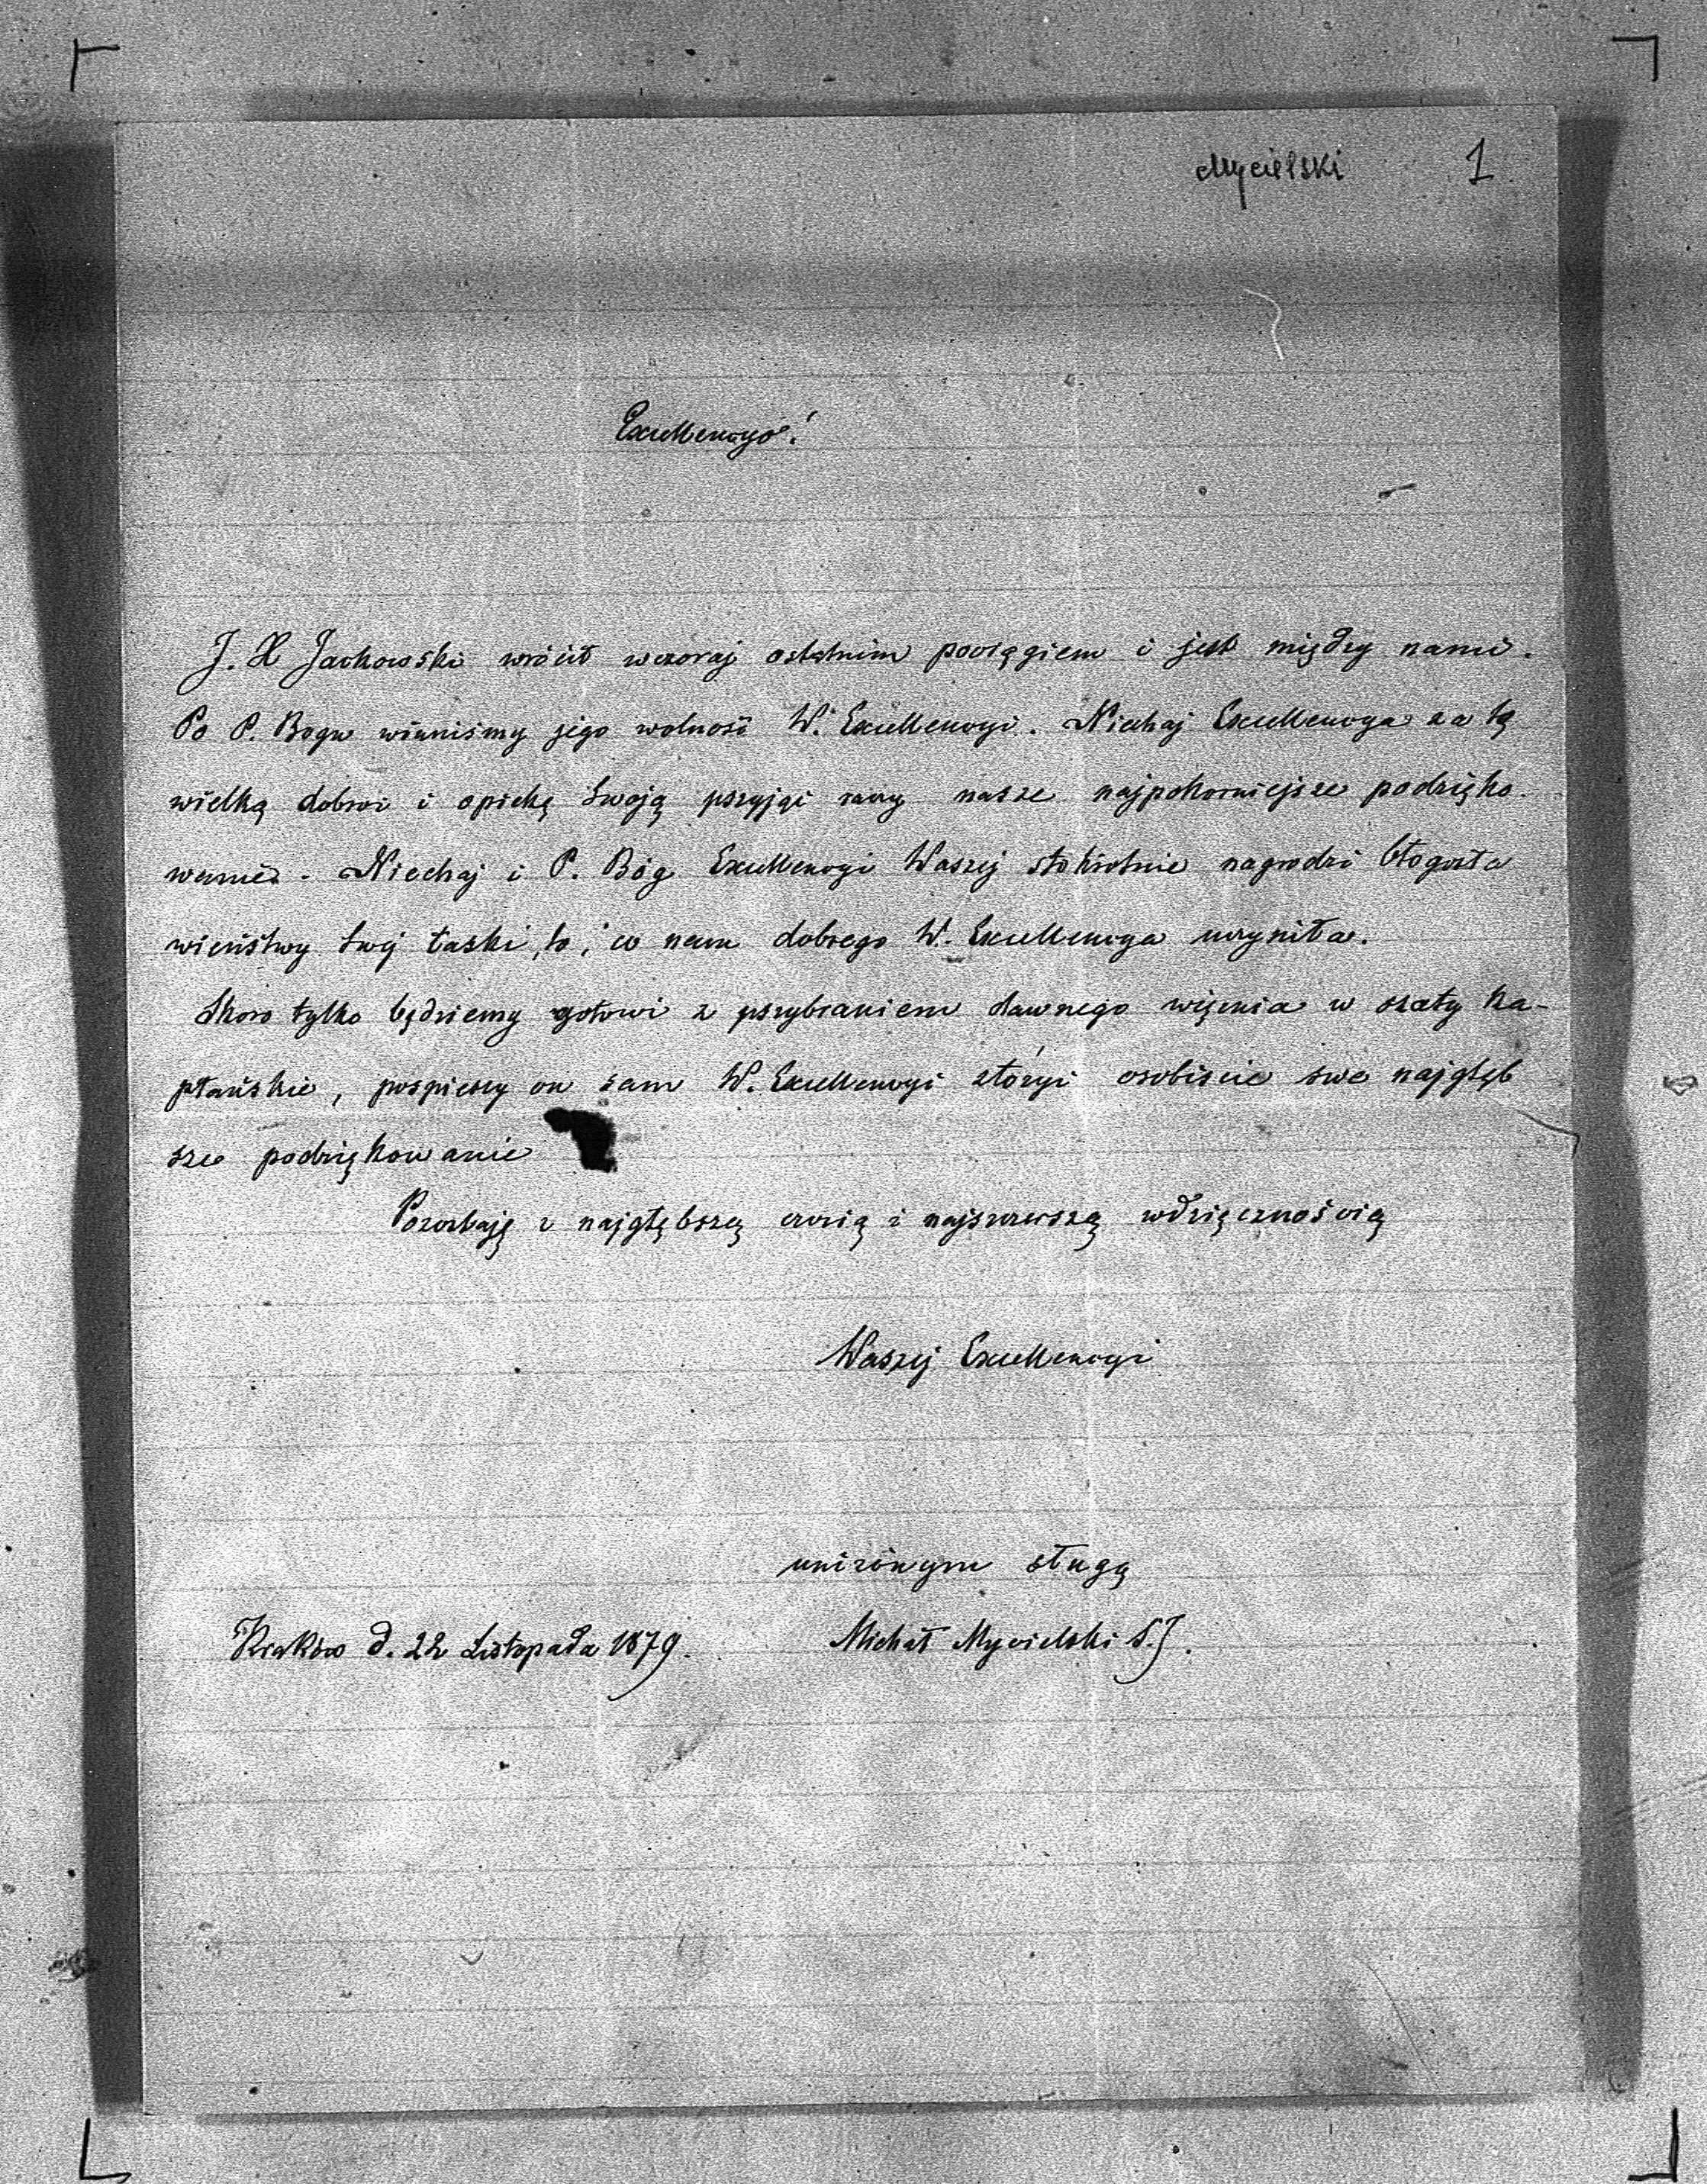 Mycielski 1
Excellencyo!
J. X Jackowski wrócił wczoraj ostatnim pociągiem i jest między nami.
Po P. Bogu winniśmy jego wolność W. Excellencyi. Niechaj Excellencya za tę
wielką dobroć i opiekę swoją przyjąć raczy nasze najpokorniejsze podzięko-
wanie. Niechaj i P. Bóg Excellencyi Waszej stokrotnie nagrodzi błogosła
wieństwy swej łaski, to, co nam dobrego W. Excellencya uczyniła.
Skoro tylko będziemy gotowi z przybraniem dawnego więźnia w szaty ka-
płańskie, pospieszy on sam W. Excellencyi złożyć osobiście swe najgłęb
sze podziękowanie
Pozostaję z najgłębszą czcią i najszczerszą wdzięcznością
Waszej Excellencyi
uniżonym sługą
Kraków d. 22 Listopada 1879. Michał Mycielski S.J.